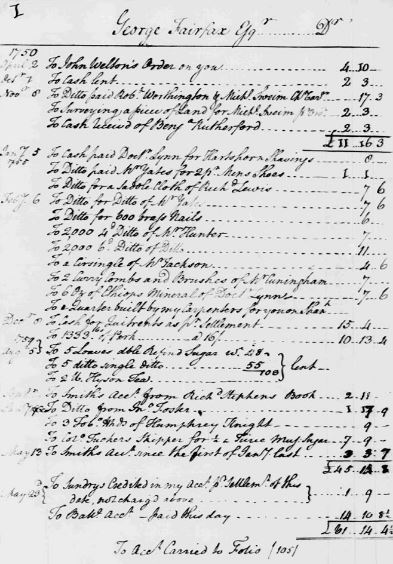 I
George Fairfax Esqr Dr
1750
April 2 To John Welton's Order on you 4 10
To Cash lent 2 3
Novr 8 To Ditto paid Robt Worthington & Michl 17 3
To Surveying a piece of Land for Michl 2 3
To Cash receivd of Benj Rutherford 2 3
£11 16 3
5 To Cash paid Doctr Lynn for Hartshorn Shavings 8
To Ditto paid Mr Yates for 2 pr Mens Shoes 1 1
To Ditto for a Saddle Cloth of Lewis 7 6
6 To Ditto for Ditto of Mr 7 6
To Ditto for 600 brass Nails 6
To 2000 4d Ditto of Mr Hunter 7
To 2000 6d Ditto of Ditto 11
To a Cersingle of Mr Jackson 4 6
To 2 Curry Combs and Brushes of Mr Cuningham 7
To 6 Oz of Ethiops Mineral of Doctr Lynn 7 6
To a Quarter built by my Carpenters for you on
Decr 8 To Cash for Quitrents as pr Settlement 15 4
To Pork a 16/ 10 13 4
To 5 Loaves dble Refind Sugar wt
To 5 ditto single Ditto 55 lent
108
To 2 lb Hyson Tea
To Smiths Acct from Richd Stephens Book 2 11
To Ditto from Jno Foster 1 17 9
To 3 Tobo Hhds of Humphrey Knight 9
To Colo Tuckers Skipper for Sugar 7 9
May 13 To Smiths Acct since the first of last 3 3 7
£45
May 23 To Sundrys Credited in my Acct pr Settlemt of this
date, not chargd above 1 9
To Balle Acct paid this day 14 10 8½
£61 14 4½
To Acct Carried to Folio (105)